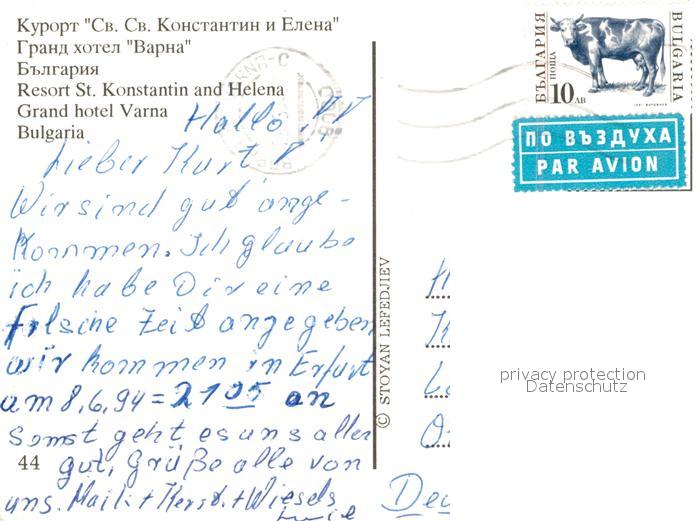 Курорт "Св. Св. Константин и Елена"
Гранд хотел "Варна"
България
Resort St. Konstantin and Helena
Grand hotel Varna
Bulgaria
Hallo
Lieber Kurt
Wir sind gut ange-
kommen. Ich glaube
ich habe Dir eine
falsche Zeit angegeben
wir kommen in Erfurt
am 8.6.94 = 2105 an
Sonst geht es uns allen
gut, Grüße alle von
uns. Maik + Kerst. + Wiesels
44
© STOYAN LEFEDJIEV
БЪЛГАРИЯ
ПОЩА
10 ЛВ
BULGARIA
ПО ВЪЗДУХА
PAR AVION
privacy protection
Datenschutz